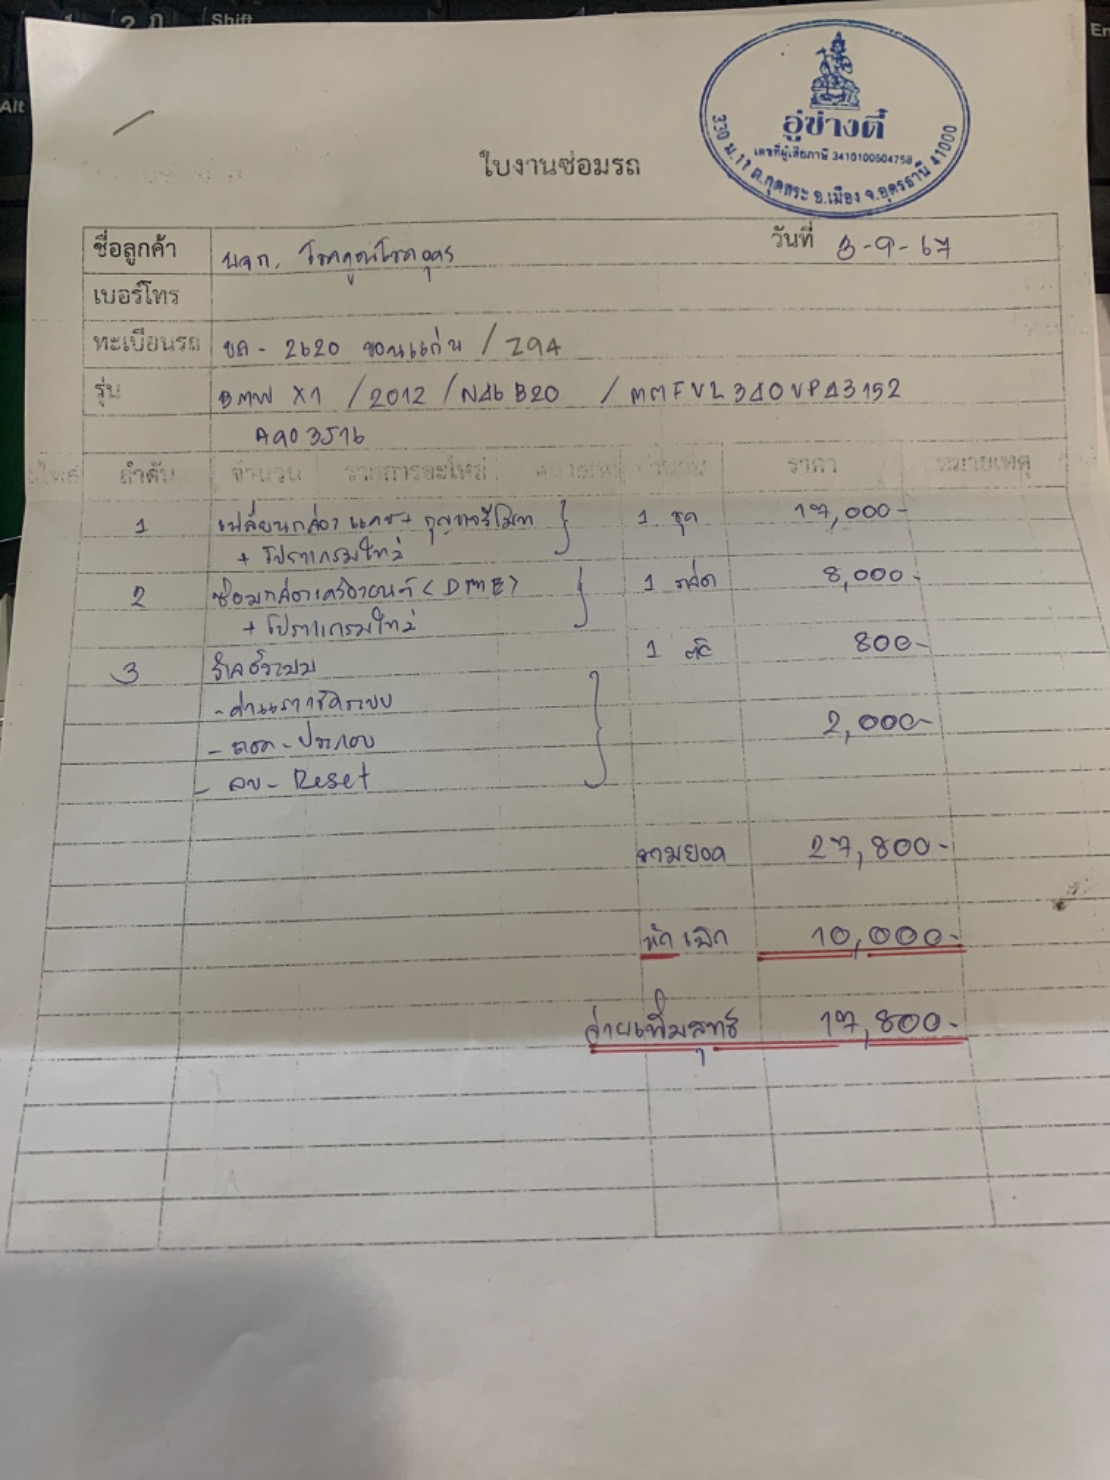 Shift
Alt
อู่ช่างตี๋
เลขที่ผู้เสียภาษี 3410100504758
330 ม.11 ต.กุดสระ อ.เมือง จ.อุดรธานี 41000
ใบงานซ่อมรถ
ชื่อลูกค้า หจก. โชคคูณโชคอุดร วันที่ 3-9-67
เบอร์โทร
ทะเบียนรถ ขล - 2620 ขอนแก่น / Z9A
รุ่น BMW X1 / 2012 / N46B20 / MMFVL340VPA3152
A903516
ลำดับ จำนวน รายการอะไหล่ ราคา หมายเหตุ
1 เปลี่ยนกล่อง แคช + กุญแจรีโมท 1 ชุด 17,000-
+ โปรแกรมใหม่
2 ซ่อมกล่องเครื่องยนต์ (DME) 1 กล่อง 8,000-
+ โปรแกรมใหม่
3 รีเลย์ระบบ 1 ตัว 800-
- ค่าแรงเช็คระบบ
- ถอด - ประกอบ 2,000-
- ลบ - Reset
รวมยอด 27,800-
หัก เบิก 10,000-
จ่ายเพิ่มสุทธิ 17,800-